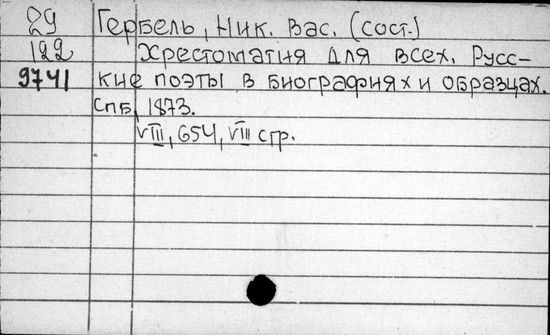 29 Гербель, Ник. Вас. (сост.)
122 Хрестоматия для всех. Русс-
9741 кие поэты в биографиях и образцах.
Спб, 1873.
VIII, 654, VIII стр.